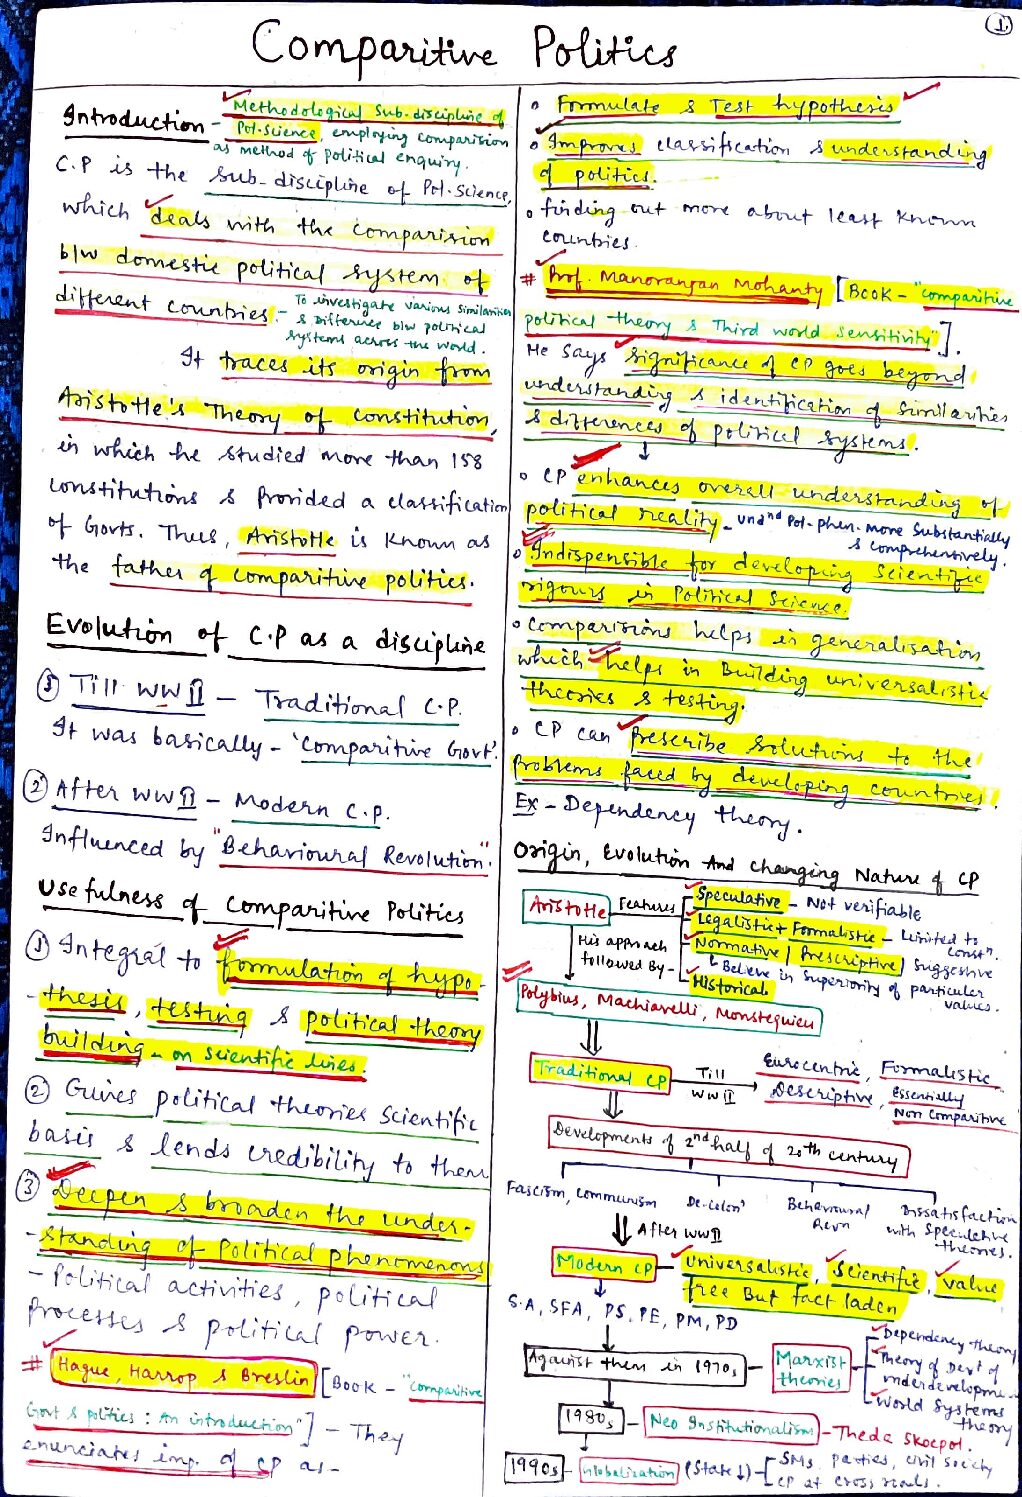 1.
Comparitive Politics
Introduction - Methodological Sub-discipline of
Pol-Science, employing comparision
as method of political enquiry.
C.P is the sub-discipline of Pol-Science,
which deals with the comparision
b/w domestic political system of
different countries. - To investigate various similarities
& Difference b/w political
systems across the world.
It traces its origin from
Aristotle's Theory of constitution,
in which he studied more than 158
constitutions & Provided a classification
of Govts. Thus, Aristotle is known as
the father of comparitive politics.
Evolution of C.P as a discipline
① Till WW II - Traditional C.P.
It was basically - 'Comparitive Govt'.
② After WW II - Modern C.P.
Influenced by "Behavioural Revolution".
Usefulness of Comparitive Politics
① Integral to formulation of hypo-
-thesis, testing & political theory
building - on scientific lines.
② Guives political theories scientific
basis & lends credibility to them
③ Deepen & broaden the under-
-standing of Political phenomenons
- Political activities, political
Processes & political power.
# Hague, Harrop & Breslin [Book - "comparitive
Govt & politics : An introduction"] - They
enunciates imp. of CP as -
• Formulate & Test hypothesis
• Improves classification & understanding
of politics.
• finding out more about least known
countries.
# Prof. Manoranjan Mohanty [Book - "comparitive
political theory & Third world Sensitivity"].
He says significance of CP goes beyond
understanding & identification of similarities
& differences of political systems.
↓
• CP enhances overall understanding of
political reality - undnd Pol-phen. more substantially
& comprehensively.
• Indispensible for developing Scientific
rigours in Political Science.
• Comparisions helps in generalisation
which helps in Building universalistic
theories & testing.
• CP can Prescribe solutions to the
Problems faced by developing countries.
Ex - Dependency theory.
Origin, Evolution And Changing Nature of CP
Aristotle Features Speculative - Not verifiable
Legalistic + Formalistic - Limited to
constn.
His approach Normative / Prescriptive Suggestive
followed By - Believe in Superiority of particular
values.
Historical
Polybius, Machiavelli, Monstequieu
Traditional CP Till
WW II
Eurocentric, Formalistic
Descriptive, Essentially
Non Comparitive
Developments of 2nd half of 20th century
Fascism, Communism De-colon' Behavioural
Revn Dissatisfaction
with Speculative
theories.
After WW II
Modern CP - Universalistic, Scientific, value
free But fact laden
S.A, SFA, PS, PE, PM, PD
Against them in 1970s - Marxist
theories
Dependency theory
Theory of Devt of
underdevelopme-
World Systems
theory
1980s - Neo Institutionalism - Theda Skocpol.
1990s - Globalization (State ↓) - SMs, parties, civil society
CP at cross roads.